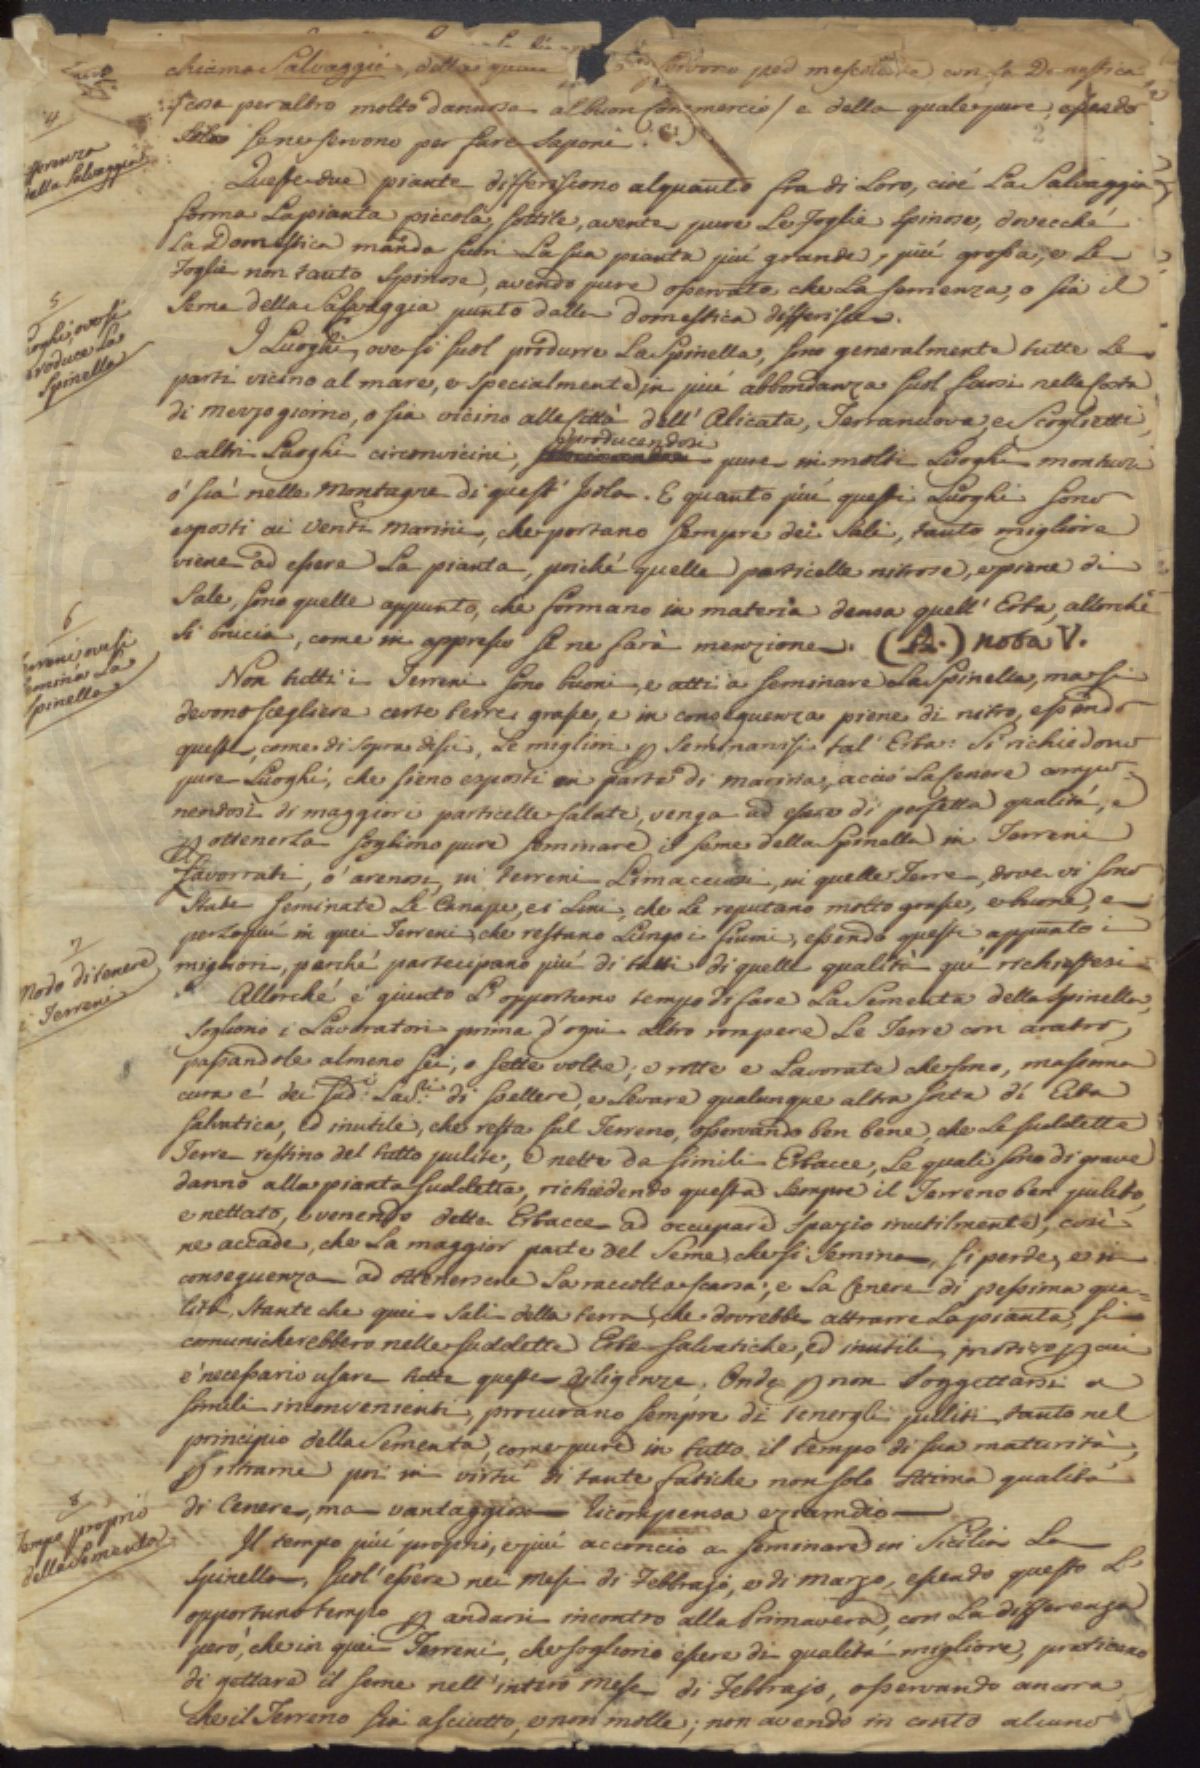 chiama Salvaggia, della quale si servono per mescolare con la Domestica
/cosa per altro molto dannosa al buon Commercio/ e della quale pure, essendo
sola se ne servono per fare saponi.
4
Differenza
della Salvaggia
Queste due piante differiscono alquanto fra di Loro, cioé La Salvaggia
forma La pianta piccola, sottile, avente pure Le foglie spinose, dovecché
La Domestica manda fuori La sua pianta piú grande, piú grossa, e Le
foglie non tanto Spinose, avendo pure osservato che La semenza, o sia il
seme della Salvaggia punto dalla domestica differisce.
5
Luoghi, ove si
produce La
Spinella
I Luoghi, ove si suol produrre La Spinella, sono generalmente tutte Le
parti vicino al mare, e specialmente in piú abbondanza suol farsi nella Costa
di mezzogiorno, o sia vicino alle Città dell' Alicata, Terranova, e Scoglietti,
e altri Luoghi circonvicini, producendosi pure in molti Luoghi montuosi
ó sia nelle Montagne di quest' Isola. E quanto piú questi Luoghi sono
esposti ai venti marini, che portano sempre dei Sali, tanto migliore
viene ad essere La pianta, poiché quelle particelle nitrose, e piene di
Sale, sono quelle appunto, che formano in materia densa quell' Erba, allorché
si brucia, come in appresso se ne farà menzione. (A.) nota V.
6
Terreni ove si
semina La
Spinella
Non tutti i Terreni sono buoni, e atti a seminare La Spinella, ma si
devono scegliere certe terre grasse, e in conseguenza piene di nitro, essendo
queste, come di sopra dissi, Le migliori p seminarvisi tal' Erba: Si richiedono
pure Luoghi, che sieno esposti in parte di marina, acció La Cenere compo=
nendosi di maggiori particelle salate, venga ad essere di perfetta qualità, e
p ottenerla sogliono pure seminare il seme della Spinella in Terreni
Lavorati, ó arenosi, in terreni Limacciosi, in quelle Terre, dove vi sono
State seminate Le Canape, e i Lini, che Le reputano molto grasse, e buone, e
per Lo piú in quei Terreni, che restano Lungo i fiumi, essendo questi appunto i
migliori, perché partecipano piú di tutti di quelle qualità qui richiestesi
7
Modo di tenere
i Terreni
Allorché é giunto L' opportuno tempo di fare La Sementa della Spinella,
sogliono i Lavoratori prima d' ogni altro rompere Le Terre con aratro,
passandole almeno sei, o sette volte; e rotte e Lavorate che sono, massima
cura é dei Sud.i Lav.i di svellere, e Levare qualunque altra sorta di Erba
salvatica, ed inutile, che resta sul Terreno, osservando ben bene, che Le suddette
Terre restino del tutto pulite, e nette da simili Erbacce, Le quali sono di grave
danno alla pianta suddetta, richiedendo questa sempre il Terreno ben pulito,
e nettato, e venendo dette Erbacce ad occupare spazio inutilmente, cosí
ne accade, che La maggior parte del Seme, che si Semina, si perde, e in
conseguenza ad ottenersene La raccolta scarsa; e La Cenere di pessima qua=
lità, stante che quei Sali della terra, che dovrebbe attrarre La pianta, si
comunicherebbero nelle suddette Erbe salvatiche, ed inutili, motivo p cui
e' necessario usare tutte queste diligenze. Onde p non Soggettarsi a
simili inconvenienti, procurano sempre di tenergli puliti, tanto nel
principio della Sementa, come pure in tutto il tempo di sua maturità,
p ritrarne poi in virtú di tante fatiche non solo ottima qualità
di Cenere, ma vantaggiosa ricompensa eziamdio
8
Tempo proprio
della Sementa
Il tempo piú proprio, e piú acconcio a seminare in Sicilia La
Spinella, suol' essere nei Mesi di Febbrajo, e di Marzo, essendo questo L'
opportuno tempo p andarsi incontro alla Primavera, con La differenza
peró, che in quei Terreni, che sogliono essere di qualità migliore, praticano
di gettare il seme nell' intero Mese di Febbrajo, osservando ancora
che il Terreno sia asciutto, e non molle; non avendo in conto alcuno